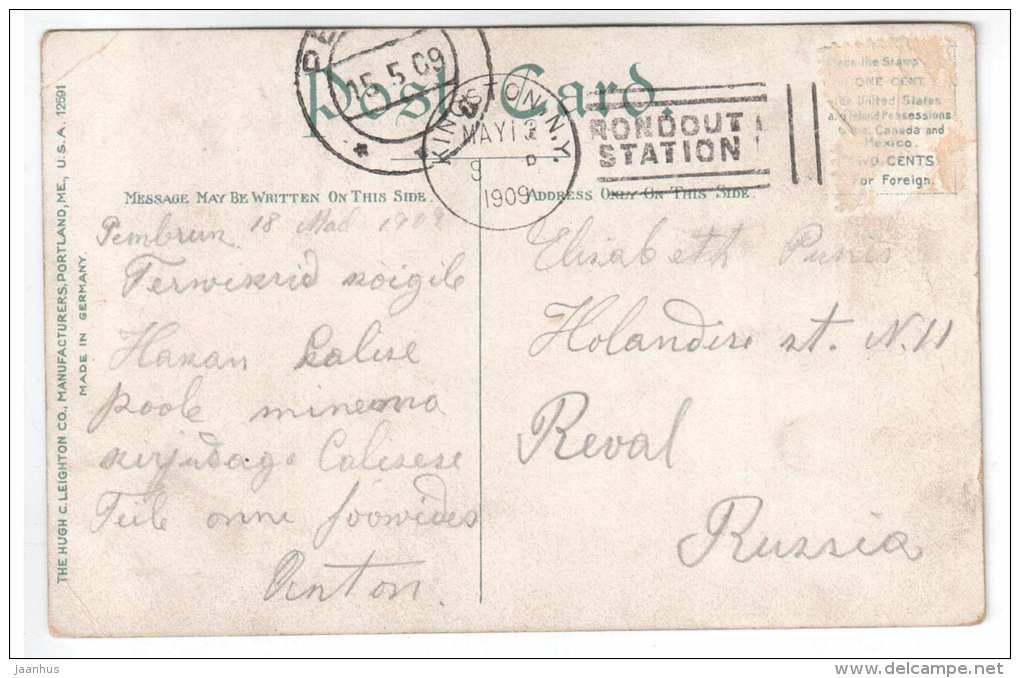 Post Card.
15.5.09
KINGSTON, N.Y.
MAY 13
1909
RONDOUT
STATION
Place the Stamp
ONE CENT
for United States
and Island Possessions
Canada and
Mexico.
TWO CENTS
for Foreign.
MESSAGE MAY BE WRITTEN ON THIS SIDE.
ADDRESS ONLY ON THIS SIDE.
THE HUGH C. LEIGHTON CO., MANUFACTURERS, PORTLAND, ME., U.S.A. 12591
MADE IN GERMANY.
18 1909
Terwikrid köigile
Hakan
poole minema
Teile önne soowides
Anton.
Elisabeth Punis
Holandire st. N. 11
Reval
Russia
jaanhus
http://www.delcampe.net